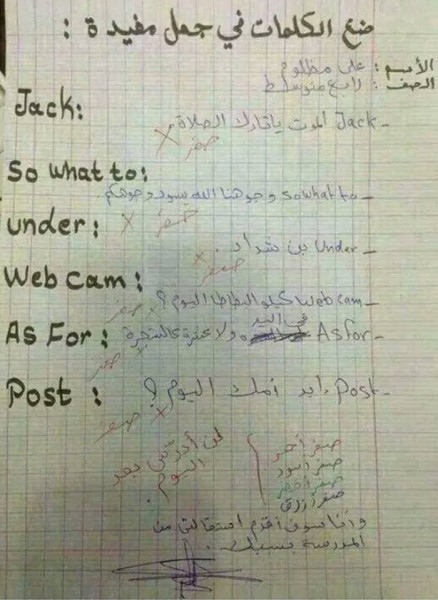 ضع الكلمات في جمل مفيدة :
الأسم : علي مظلوم
الصف : رابع متوسط
Jack:
_ Jack الموت ياتارك الصلاة.
صفر ×
So what to:
_ so what to وجوهنا الله يسود وجوهكم.
صفر ×
under:
_ Under بن شداد.
صفر ×
Web cam:
_ Web cam كيلو البطاطا اليوم؟
صفر ×
As For:
_ As for في اليد ولا عشرة عالشجرة
صفر ×
Post :
_ Post رايد أمك اليوم؟
صفر ×
صفر أحمر
صفر أسود
صفر أخضر
صفر أزرق
لن أدرّس بعد
اليوم.
وأنا سوف أقدم استقالتي من
المدرسة بسببك.